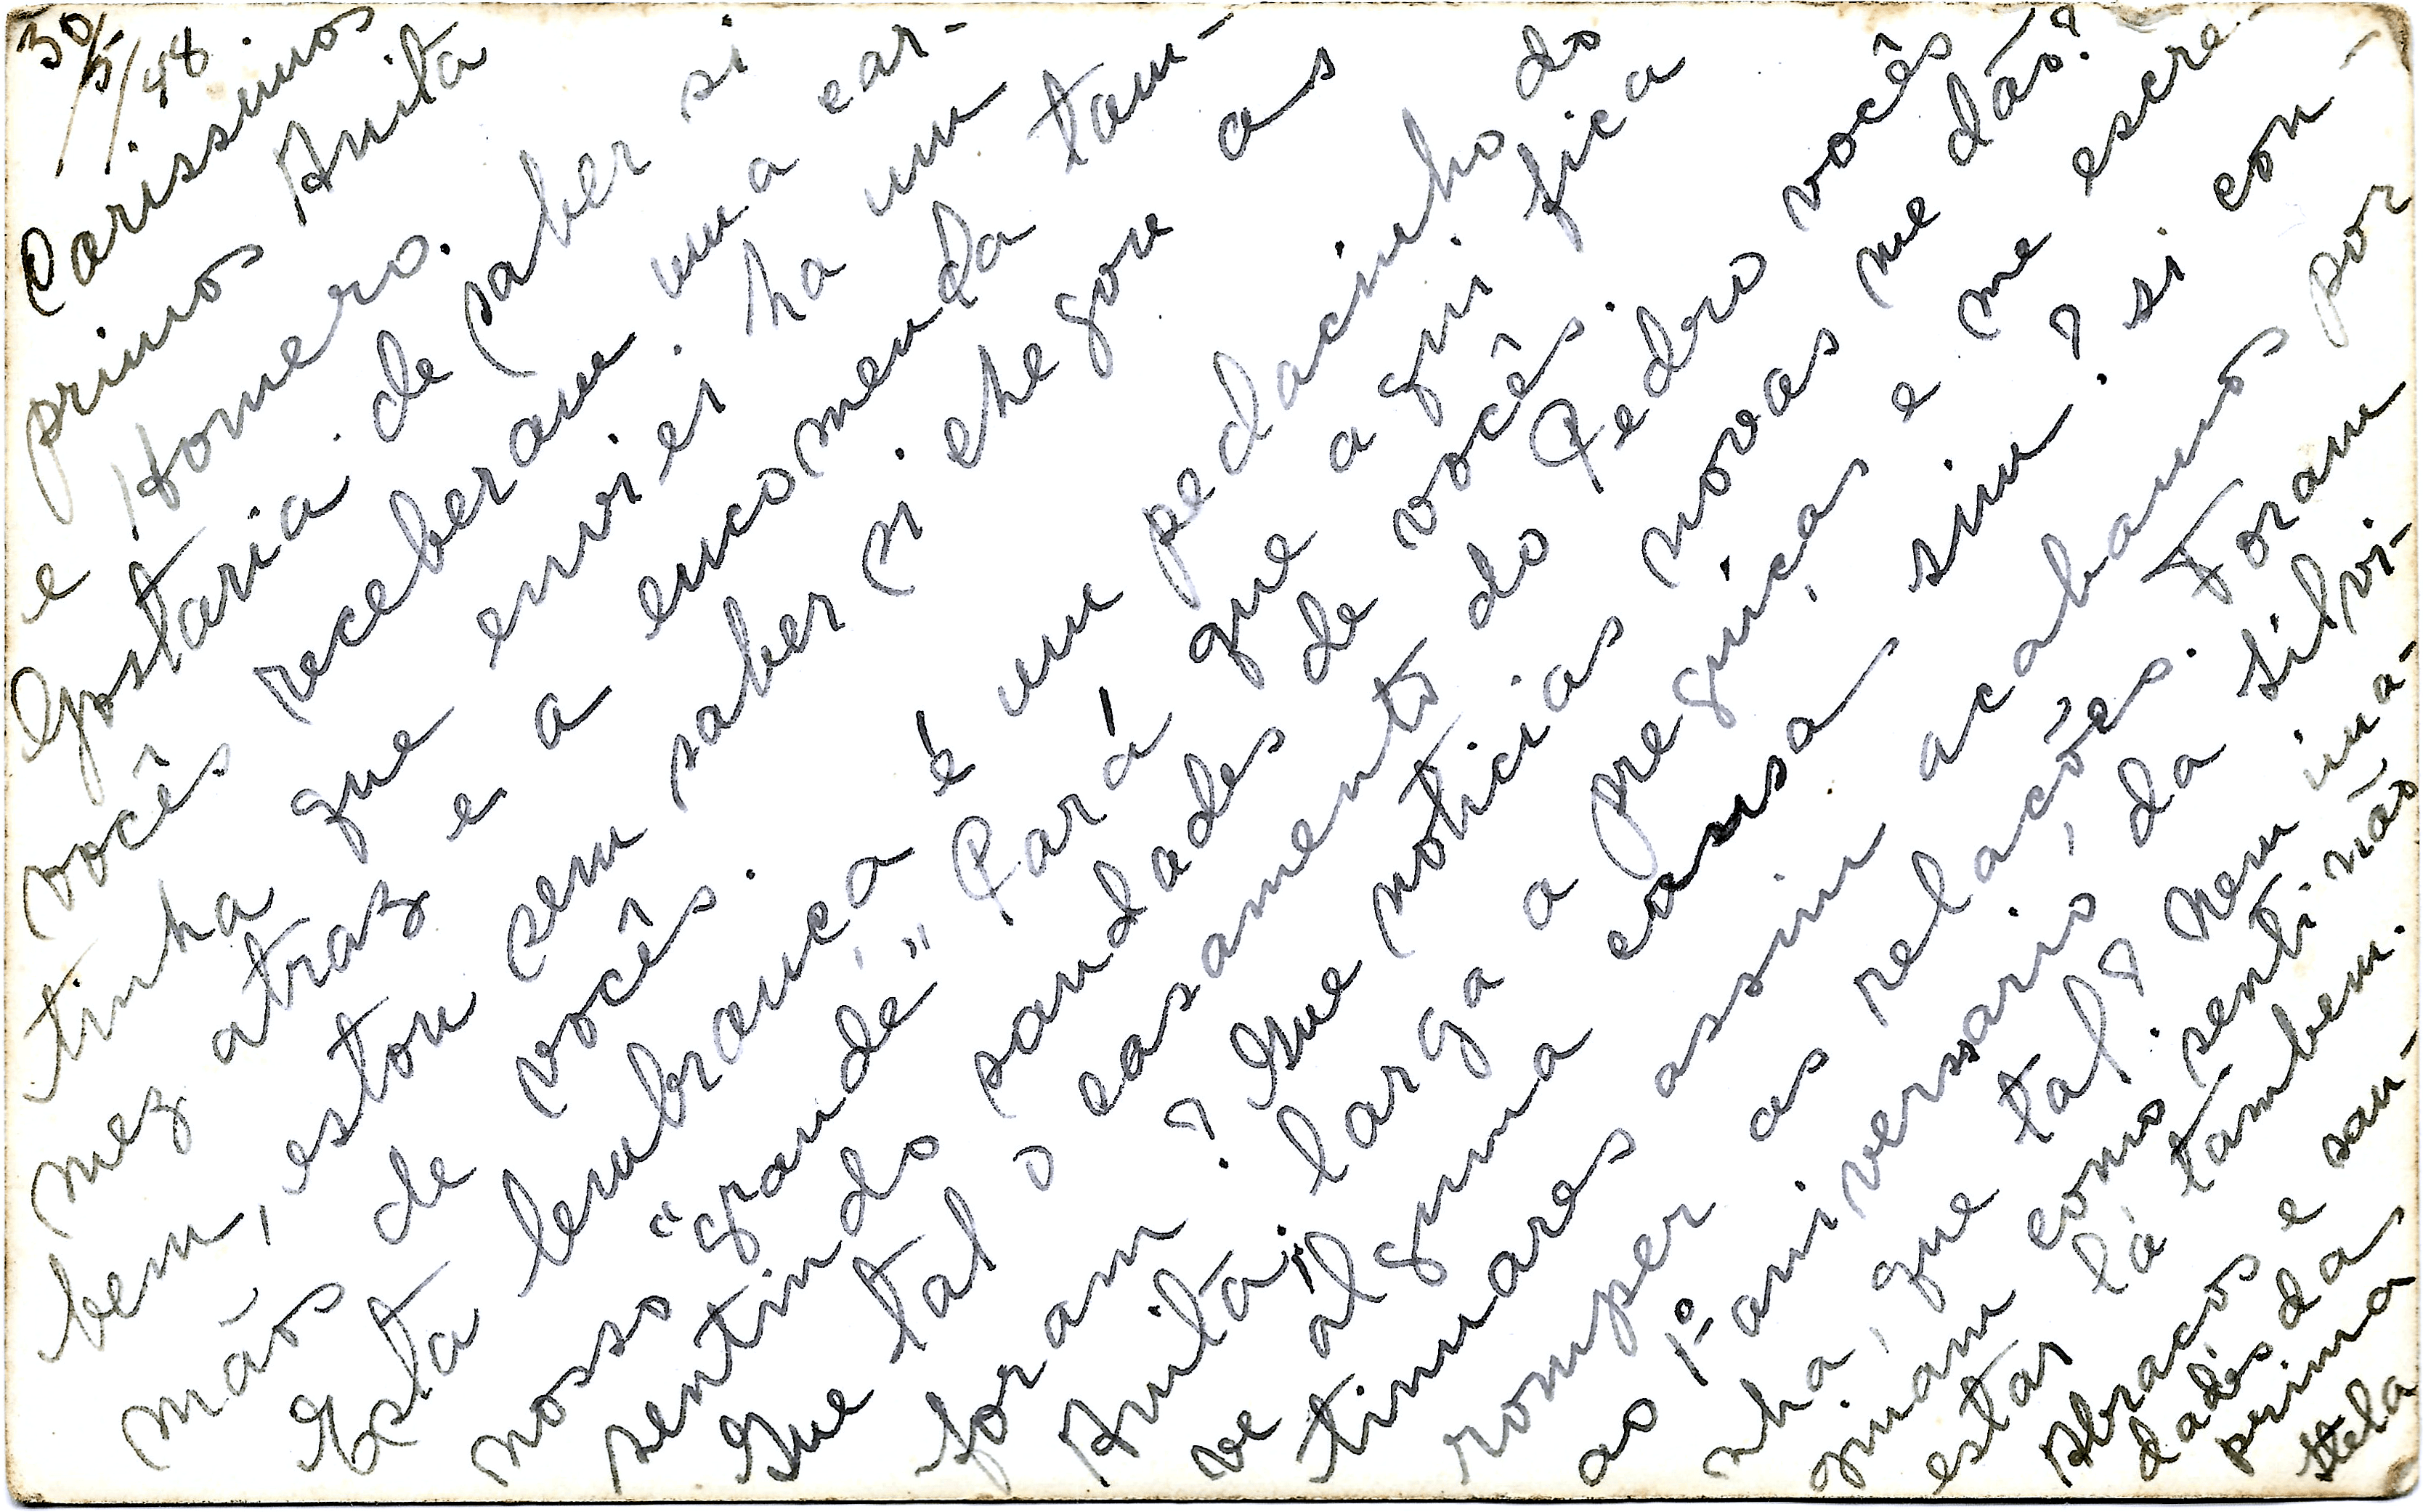 30/5/48.
Carissimos
primos Anita
e Homero.
Gostaria de saber si
vocês receberam uma car-
tinha que enviei ha um
mez atraz e a encomenda tam-
bem, estou sem saber si chegou as
mãos de vocês.
Esta lembrança é um pedacinho do
nosso "grande" Pará que aqui fica
sentindo saudades de vocês.
Que tal o casamento do Pedro vocês
foram? Que noticias novas me dão?
Anita, larga a preguiças e me escre-
ve alguma coisa sim? si con-
tinuares assim acabamos por
romper as relacões. Foram
ao 1º aniversario da Silvi-
nha, que tal? Nem ima-
ginam como senti não
estar lá tambem.
Abracos e sau-
dades da
prima
Stela